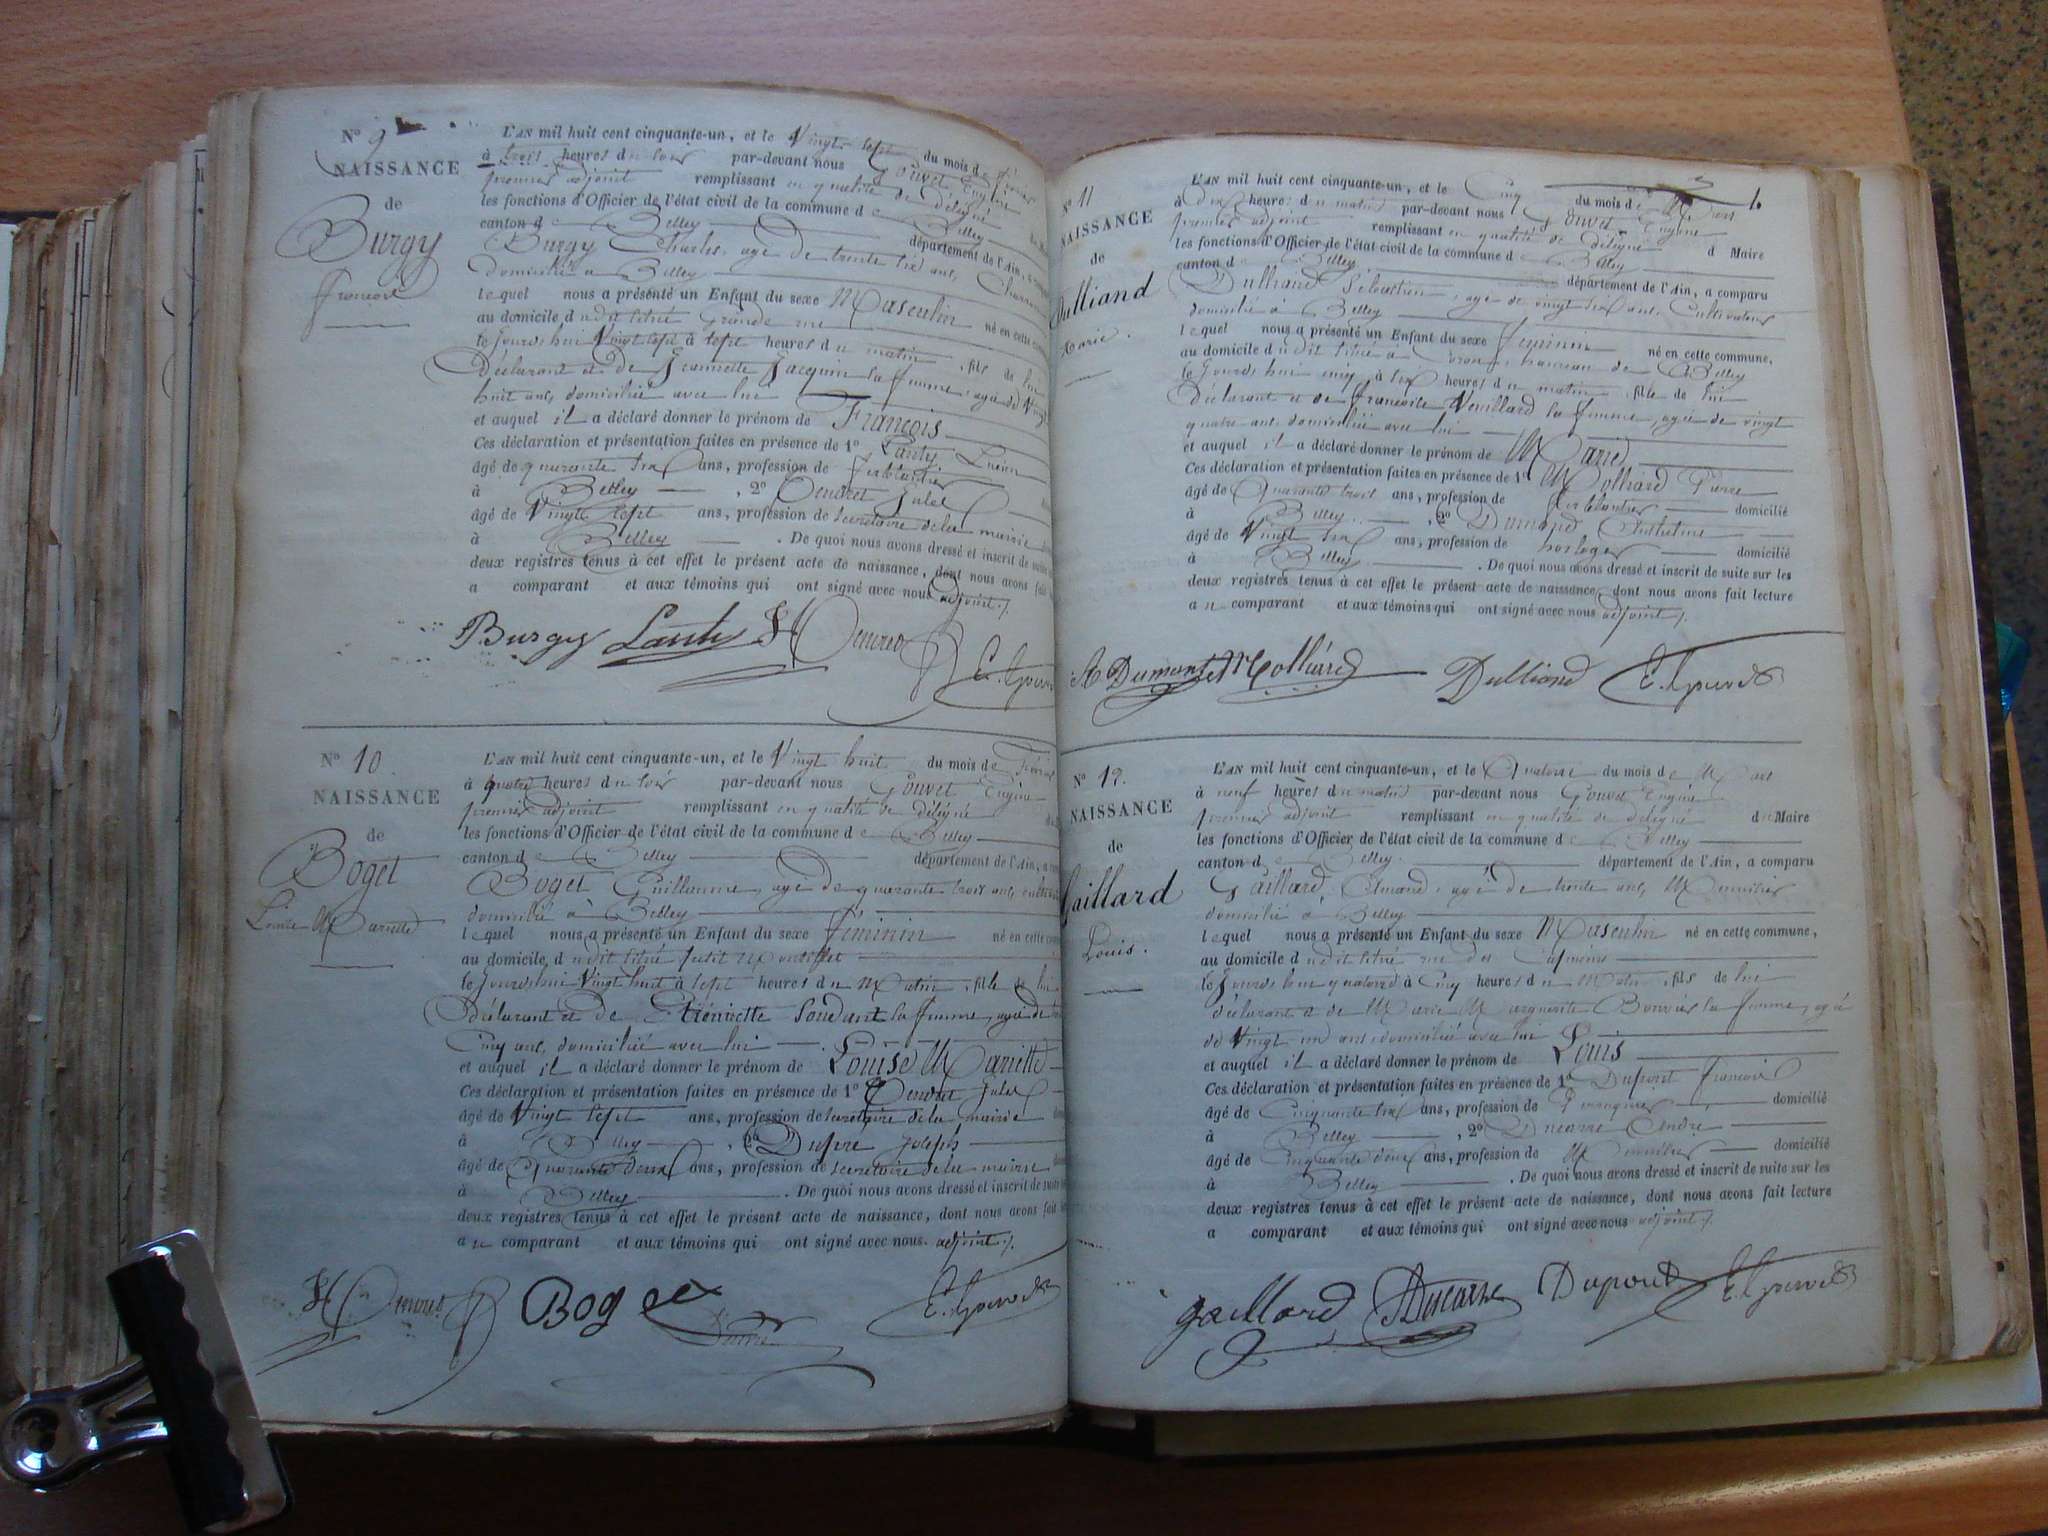 N° 9
NAISSANCE
de
Burgy
François
L'AN mil huit cent cinquante-un, et le Vingt sept du mois de
à trois heures du soir par-devant nous Gouvet Eugène
premier adjoint remplissant en qualité de délégué
les fonctions d'Officier de l'état civil de la commune de Belley
canton de Belley département de l'Ain, a
Burgy Charles, agé de trente six ans,
domicilié à Belley
lequel nous a présenté un Enfant du sexe Masculin né en cette
au domicile dudit situé Grande rue
le jourd'hui Vingt sept à sept heures du matin, fils de lui
Déclarant et de Jeannette Jacquin sa femme, agée de Vingt
huit ans, domiciliée avec lui
et auquel il a déclaré donner le prénom de François
Ces déclaration et présentation faites en présence de 1° Lanty
âgé de quarante six ans, profession de ferblantier
à Belley, 2° Jules
âgé de Vingt sept ans, profession de secrétaire de la mairie
à Belley. De quoi nous avons dressé et inscrit de suite
deux registres tenus à cet effet le présent acte de naissance, dont nous avons fait
a comparant et aux témoins qui ont signé avec nous adjoint ./.
Burgy Lanty E. Gouvet
N° 10
NAISSANCE
de
Boget
Louise Mariette
L'AN mil huit cent cinquante-un, et le Vingt huit du mois de
à quatre heures du soir par-devant nous Gouvet Eugène
premier adjoint remplissant en qualité de délégué
les fonctions d'Officier de l'état civil de la commune de Belley
canton de Belley département de l'Ain, a
Boget Guillaume, agé de quarante trois ans,
domicilié à Belley
lequel nous a présenté un Enfant du sexe féminin né en cette
au domicile dudit situé petit
le jourd'hui Vingt huit à sept heures du Matin, fille de lui
Déclarant et de Etiennette Soudant sa femme, agée de
Cinq ans, domiciliée avec lui
et auquel il a déclaré donner le prénom de Louise Mariette
Ces déclaration et présentation faites en présence de 1° Jules
âgé de Vingt sept ans, profession de secrétaire de la mairie
à Belley, 2° Dupré Joseph
âgé de Quarante deux ans, profession de secrétaire de la mairie
à Belley. De quoi nous avons dressé et inscrit de suite
deux registres tenus à cet effet le présent acte de naissance, dont nous avons fait
au comparant et aux témoins qui ont signé avec nous. adjoint ./.
Boget E. Gouvet
N° 11
NAISSANCE
de
Dulliand
Marie.
L'AN mil huit cent cinquante-un, et le Cinq du mois de Mars
à Dix heures du matin par-devant nous Gouvet Eugène
premier adjoint remplissant en qualité de délégué d Maire
les fonctions d'Officier de l'état civil de la commune de Belley
canton de Belley département de l'Ain, a comparu
Dulliand Sébastien, agé de vingt six ans, Cultivateur
domicilié à Belley
lequel nous a présenté un Enfant du sexe féminin né en cette commune,
au domicile dudit situé à hameau de Belley
le jourd'hui cinq à six heures du matin, fille de lui
Déclarant et de Françoise Neuillard sa femme, agée de vingt
quatre ans, domiciliée avec lui
et auquel il a déclaré donner le prénom de Marie
Ces déclaration et présentation faites en présence de 1° Molliard Pierre
âgé de Quarante trois ans, profession de ferblantier domicilié
à Belley, 2° Dumond
âgé de Vingt six ans, profession de horloger domicilié
à Belley. De quoi nous avons dressé et inscrit de suite sur les
deux registres tenus à cet effet le présent acte de naissance, dont nous avons fait lecture
au comparant et aux témoins qui ont signé avec nous adjoint ./.
A Dumont Molliard Dulliand E. Gouvet
N° 12.
NAISSANCE
de
Gaillard
Louis.
L'AN mil huit cent cinquante-un, et le Quatorze du mois de Mars
à neuf heures du matin par-devant nous Gouvet Eugène
premier adjoint remplissant en qualité de délégué du Maire
les fonctions d'Officier de l'état civil de la commune de Belley
canton de Belley département de l'Ain, a comparu
Gaillard, agé de trente ans, Menuisier
domicilié à Belley
lequel nous a présenté un Enfant du sexe Masculin né en cette commune,
au domicile dudit situé rue des
le jourd'hui quatorze à Cinq heures du Matin, fils de lui
déclarant et de Marie Marguerite Bouvier sa femme, agée
de Vingt un ans, domiciliée avec lui
et auquel il a déclaré donner le prénom de Louis
Ces déclaration et présentation faites en présence de 1° Dupont François
âgé de Cinquante six ans, profession de Perruquier domicilié
à Belley, 2° Ducarré André
âgé de Cinquante deux ans, profession de Menuisier domicilié
à Belley. De quoi nous avons dressé et inscrit de suite sur les
deux registres tenus à cet effet le présent acte de naissance, dont nous avons fait lecture
a comparant et aux témoins qui ont signé avec nous adjoint ./.
gaillard Ducarre Dupont E. Gouvet